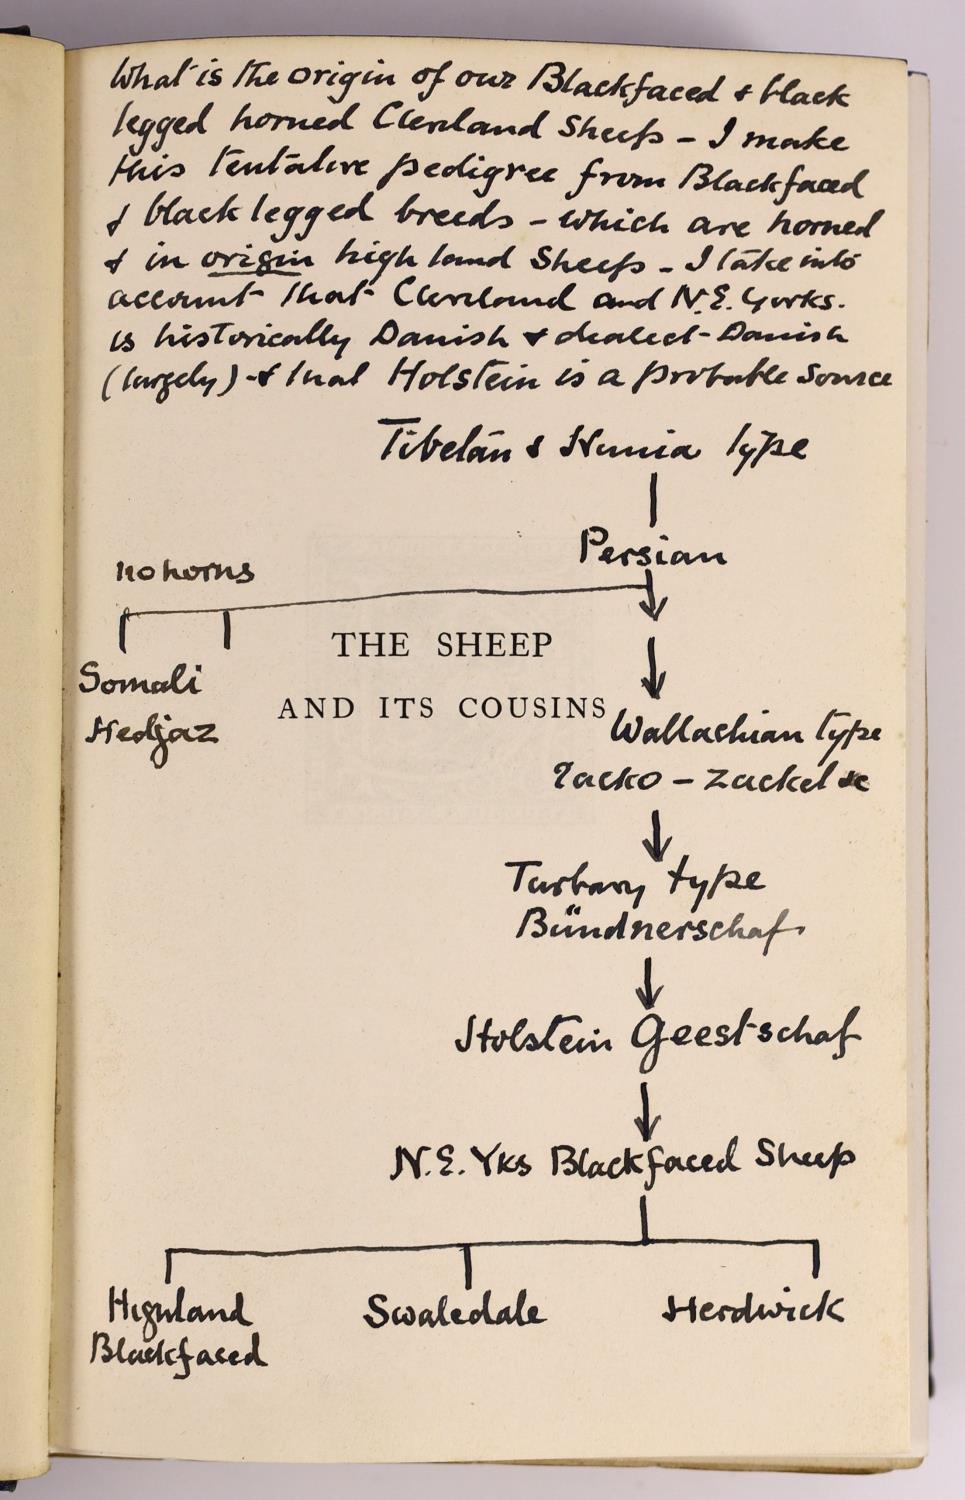 What is the origin of our Blackfaced & black
legged horned Cleveland Sheep - I make
this tentative pedigree from Blackfaced
& black legged breeds - which are horned
& in origin high land Sheep - I take into
account that Cleveland and N.E. Yorks.
is historically Danish & dialect - Danish
(largely) - & that Holstein is a probable source
Tibetan & Hunia type
Persian
no horns
THE SHEEP
Somali
AND ITS COUSINS
Hedjaz
Wallachian type
Zacko - Zackel &c
Turbary type
Bündnerschaf
Holstein Geestschaf
N.E. Yks Blackfaced Sheep
Highland
Blackfaced
Swaledale
Herdwick